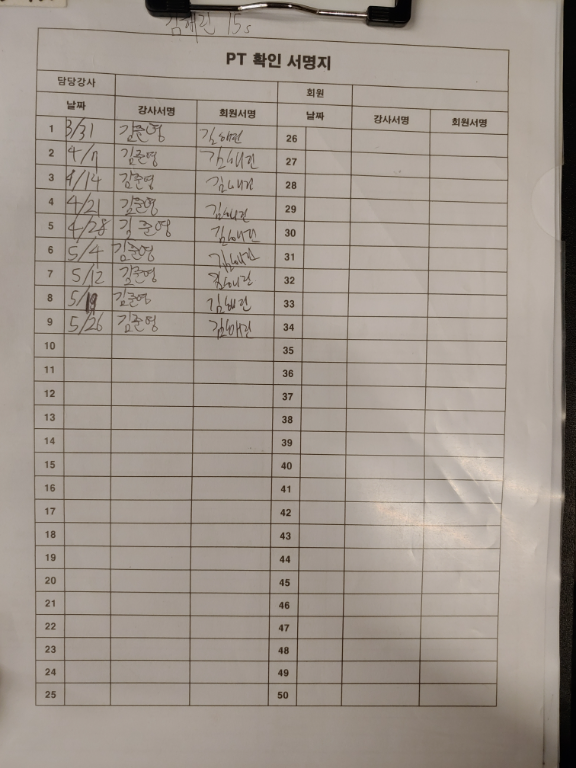 김혜린 15s
PT 확인 서명지
담당강사 회원
날짜 강사서명 회원서명 날짜 강사서명 회원서명
1 3/31 김준영 김혜린 26
2 4/7 김준영 김혜린 27
3 4/14 김준영 김혜린 28
4 4/21 김준영 김혜린 29
5 4/28 김준영 김혜린 30
6 5/4 김준영 김혜린 31
7 5/12 김준영 김혜린 32
8 5/19 김준영 김혜린 33
9 5/26 김준영 김혜린 34
10 35
11 36
12 37
13 38
14 39
15 40
16 41
17 42
18 43
19 44
20 45
21 46
22 47
23 48
24 49
25 50